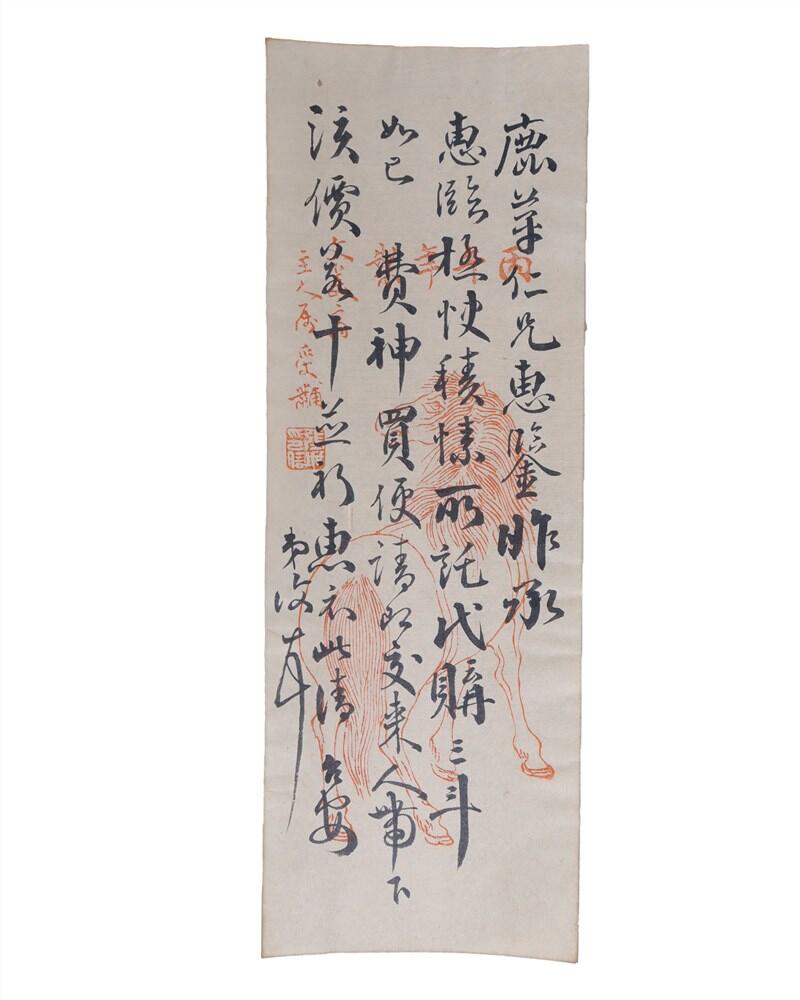 鹿苹仁兄惠鑒昨承
惠臨極快積愫所託代購三斗
如已 費神買便請即交来人帶下
該價若干並祈惠示此請台安
弟
丙午年
主人属受